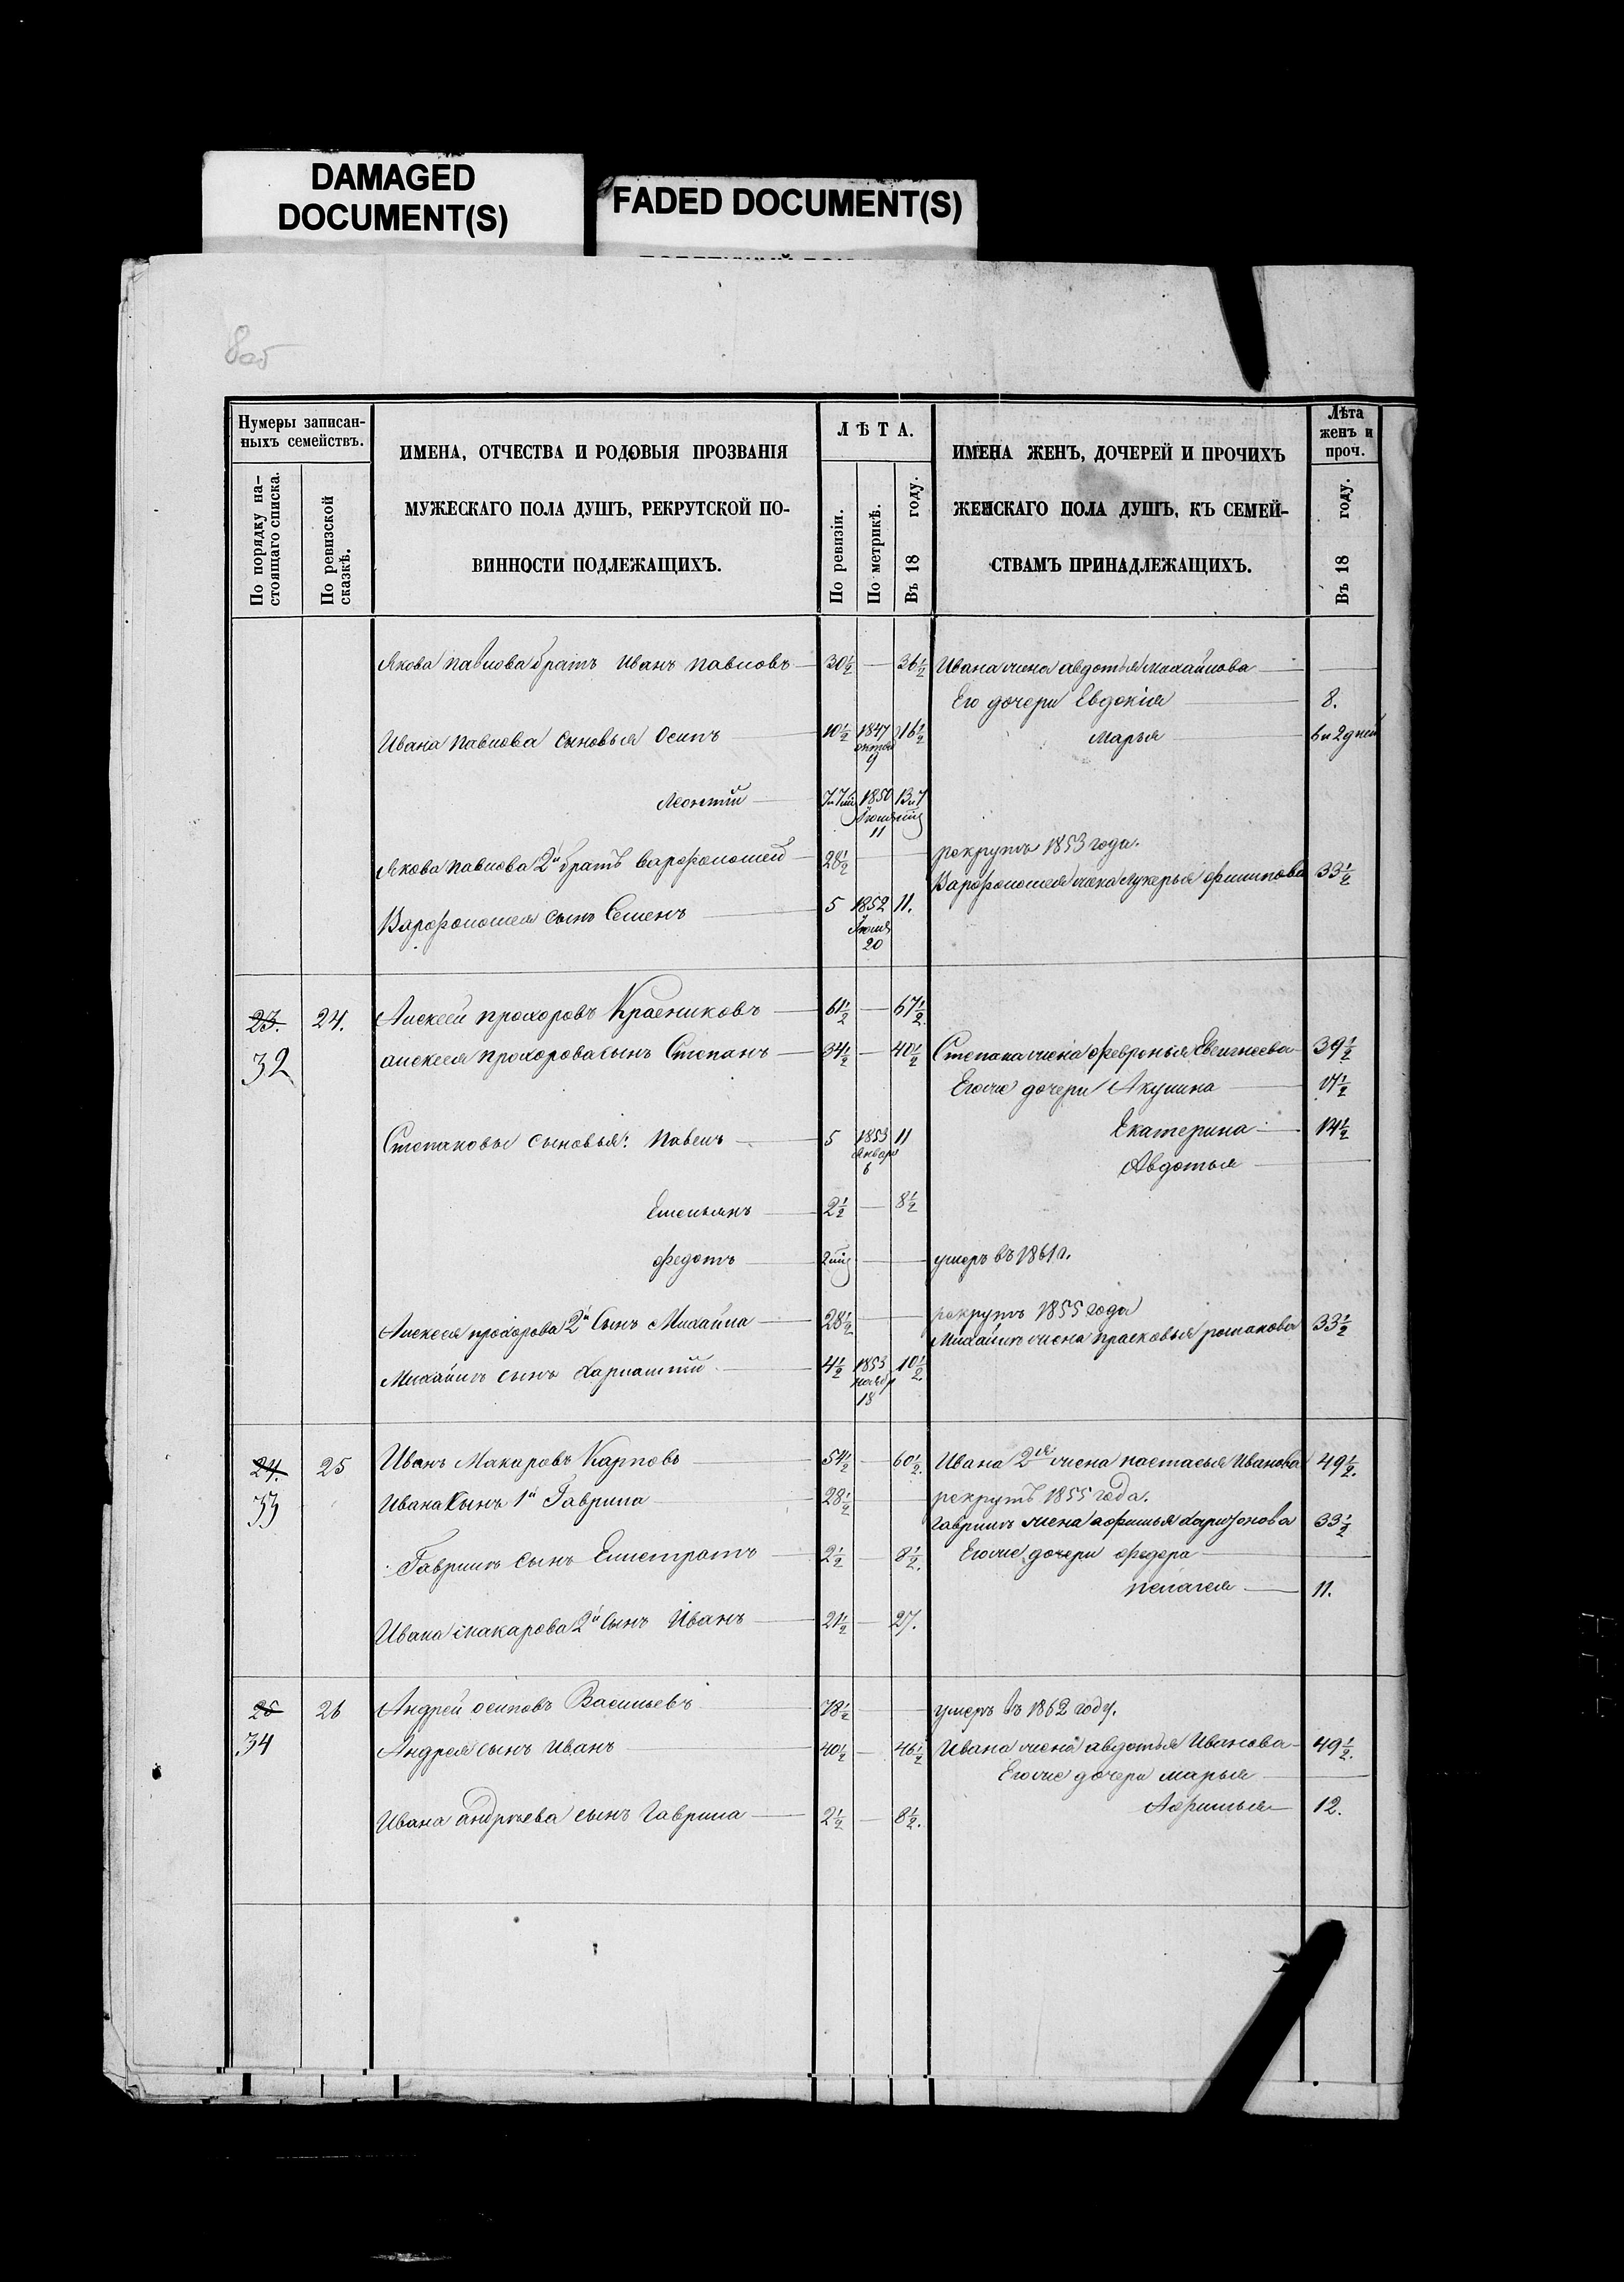 DAMAGED
DOCUMENT(S)
FADED DOCUMENT(S)
8об
Нумеры записан-
ныхъ семействъ.
По порядку на-
стоящаго списка.
По ревизской
сказкѣ.
ИМЕНА, ОТЧЕСТВА И РОДОВЫЯ ПРОЗВАНІЯ
МУЖЕСКАГО ПОЛА ДУШЪ, РЕКРУТСКОЙ ПО-
ВИННОСТИ ПОДЛЕЖАЩИХЪ.
ЛѢТА.
По ревизіи.
По метрикѣ.
Въ 18 году.
ИМЕНА ЖЕНЪ, ДОЧЕРЕЙ И ПРОЧИХЪ
ЖЕНСКАГО ПОЛА ДУШЪ, КЪ СЕМЕЙ-
СТВАМЪ ПРИНАДЛЕЖАЩИХЪ.
Лѣта
женъ и
проч.
Въ 18 году.
Якова павлова братъ Иванъ павловъ 30½ — 36½ Ивана жена авдотья михайлова —
Его дочери Евдокія 8.
Ивана павлова сыновья Осипъ 10½ 1847 октяб 9 16½ марья 6 и 2 дней
Леонтій 7 и 7 мѣц 1850 Іюля 11 13 и 7 мѣц
Якова павлова 2й братъ варфоломей 28½ — рекрутъ 1853 года.
Варфоломея жена лукерья филипова 33½
Варфоломея сынъ Семенъ 5 1852 Іюля 20 11.
23. 24. Алексей прохоровъ Красниковъ 61½ — 67½
32 алексея прохорова сынъ Степанъ 34½ — 40½ Степана жена февронья Евсигнеева 39½
Егоже дочери Акулина 17½
Екатерина 14½
Степановы сыновья: павелъ 5 1853 Января 6 11
Авдотья —
Емельянъ 2½ — 8½
федотъ 2 мѣц — умеръ въ 1861 г.
Алексея прохорова 2й сынъ Михайла 28½ — рекрутъ 1855 года
Михайлы жена прасковья романова 33½
Михайлы сынъ Харлампій 4½ 1853 ноябр 18 10½
24. 25 Иванъ Макаровъ Карповъ 54½ — 60½. Ивана 2я жена настасья Иванова 49½.
33 Ивана сынъ 1й Гаврила 28½ — рекрутъ 1855 года.
Гаврилы жена афимья харитонова 33½
Гаврилы сынъ Елистратъ 2½ — 8½. Егоже дочери федора —
пелагея 11.
Ивана макарова 2й сынъ Иванъ 21½ — 27.
25 26 Андрей осиповъ Васильевъ 78½ — умеръ въ 1862 году.
34 Андрея сынъ Иванъ 40½ — 46½ Ивана жена авдотья Иванова 49½.
Егоже дочери марья —
Афимья 12.
Ивана андреева сынъ Гаврила 2½ — 8½.